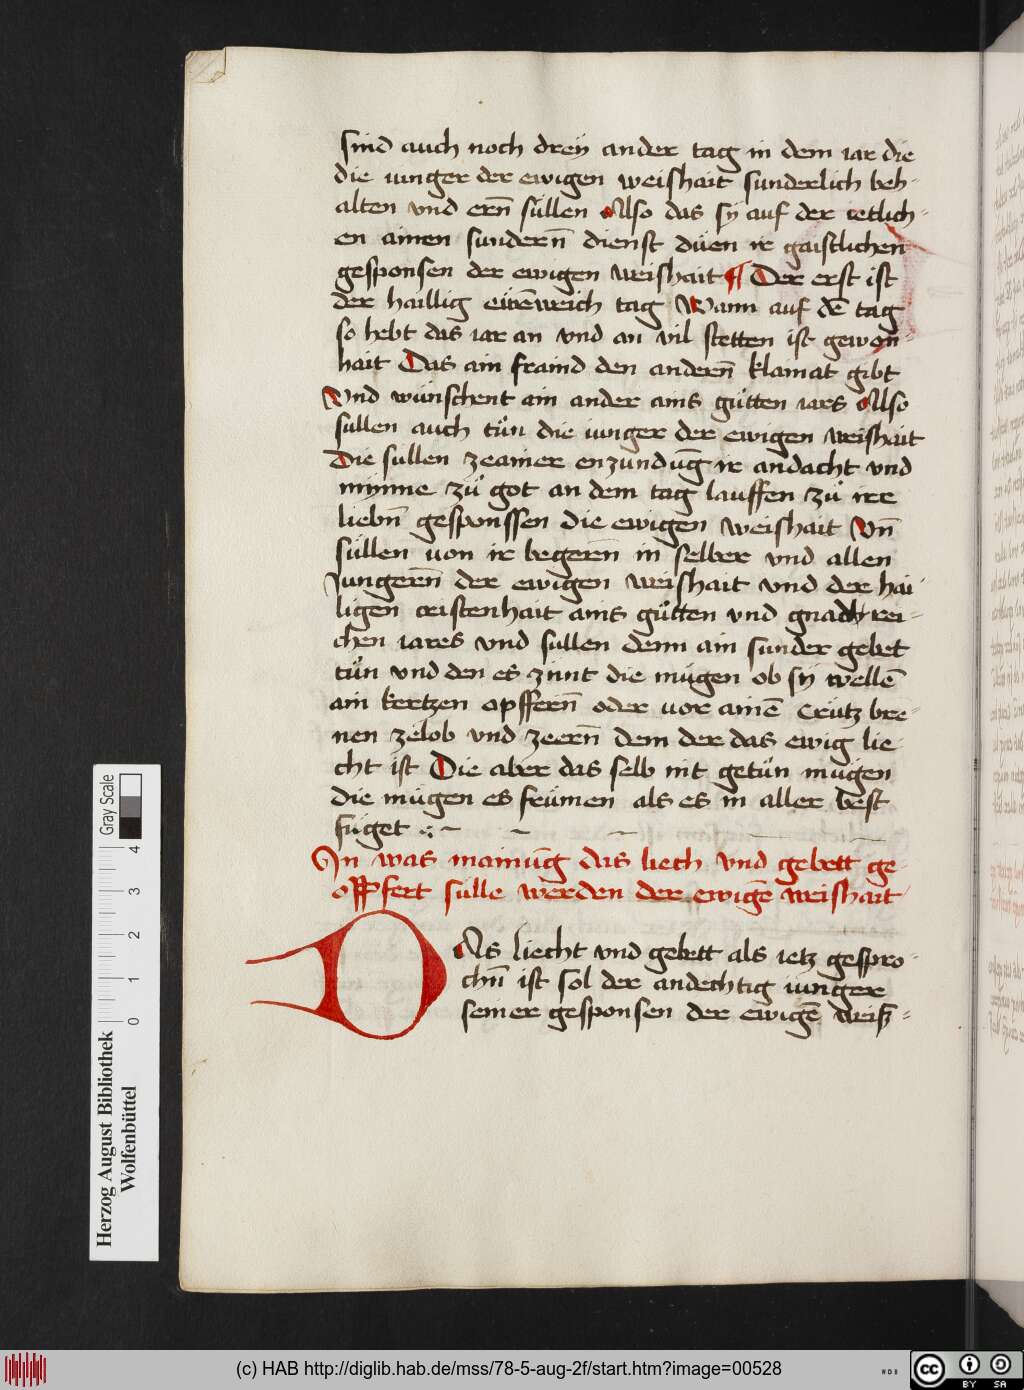 sind auch noch dreÿ ander tag in dem iar die
die iunger der ewigen weishait sunderlich beh-
alten vnd ern̄ süllen Also das sÿ auf der ietlich-
en ainen sundern̄ dienst düen ir gaistlichen
gesponsen der ewigen weishait ¶ Der erst ist
der haillig ewēweich tag Wann auf dē tag
so hebt das iar an vnd an vil stetten ist gewon-
hait Das ain fraind den andern̄ klainat gibt
Vnd wünschent ain ander ains gůtten iars Also
sullen auch tůn die iunger der ewigen weishait
Die sullen zeainer enzundūg ir andacht vnd
mynne zů got an dem tag lauffen zů irr
liebn̄ gesponssen die ewigen weishait Vn̄
süllen von ir begern̄ in selber vnd allen
Jungern̄ der ewigen weishait vnd der hai-
ligen cristenhait ains gůtten vnd gnadrei-
chen iares vnd sullen denn ain sunder gebet
tůn vnd den es zimt die mügen ob sÿ wellē
ain kertzen opffern̄ oder vor ainē Crütz bre-
nen zelob vnd zeern̄ dem der das ewig lie-
cht ist Die aber das selb nit getůn mügen
die mügen es frümen als es in aller best
fuget
In was mainūg das liech vnd gebett ge-
opffert sülle werden der ewigē weishait
DAs liecht vnd gebett als ietz gespro-
chn̄ ist sol der andechtig iunger
seiner gesponsen der ewigē weisz-
Herzog August Bibliothek
Wolfenbüttel
Gray Scale
0 1 2 3 4
(c) HAB http://diglib.hab.de/mss/78-5-aug-2f/start.htm?image=00528
WDB
cc BY SA